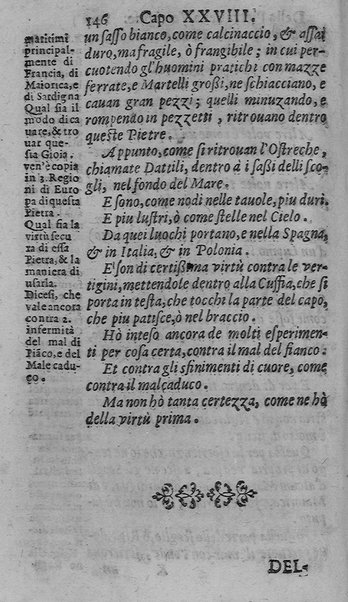 146 Capo XXVIII.
un sasso bianco, come calcinaccio, & assai
duro, ma fragile, ò frangibile; in cui per-
cuotendo gl'huomini pratichi con mazze
ferrate, e Martelli großi, ne schiacciano, e
cauan gran pezzi; quelli minuzando, e
rompendo in pezzetti, ritrouano dentro
queste Pietre.
Appunto, come si ritrouan l'Ostreche,
chiamate Dattili, dentro à i saßi delli sco-
gli, nel fondo del Mare.
E sono, come nodi nelle tauole, piu duri.
E piu lustri, ò come stelle nel Cielo.
Da quei luochi portano, e nella Spagna,
& in Italia, & in Polonia.
E' son di certißima virtù contra le ver-
tigini, mettendole dentro alla Cuffia, che si
porta in testa, che tocchi la parte del capo,
che piu patisce, ò nel braccio.
Hò inteso ancora de molti esperimen-
ti per cosa certa, contra il mal del fianco.
Et contra gli sfinimenti di cuore, come
contra il mal caduco.
Ma non hò tanta certezza, come ne hò
della virtù prima.
maritimi
principal-
mente di
Francia, di
Maiorica, e
di Sardigna
Qual sia il
modo di ca
uare, & tro
uar que-
sta Gioia.
ven'è copia
in 3. Regio
ni di Euro
pa di questa
Pietra.
Qual sia la
virtù secu
ra di essa
Pietra, & la
maniera di
usarla.
Dicesi, che
vale ancora
contra 2.
infermità
del mal di
Fiãco, e del
Male cadu-
co.
DEL-